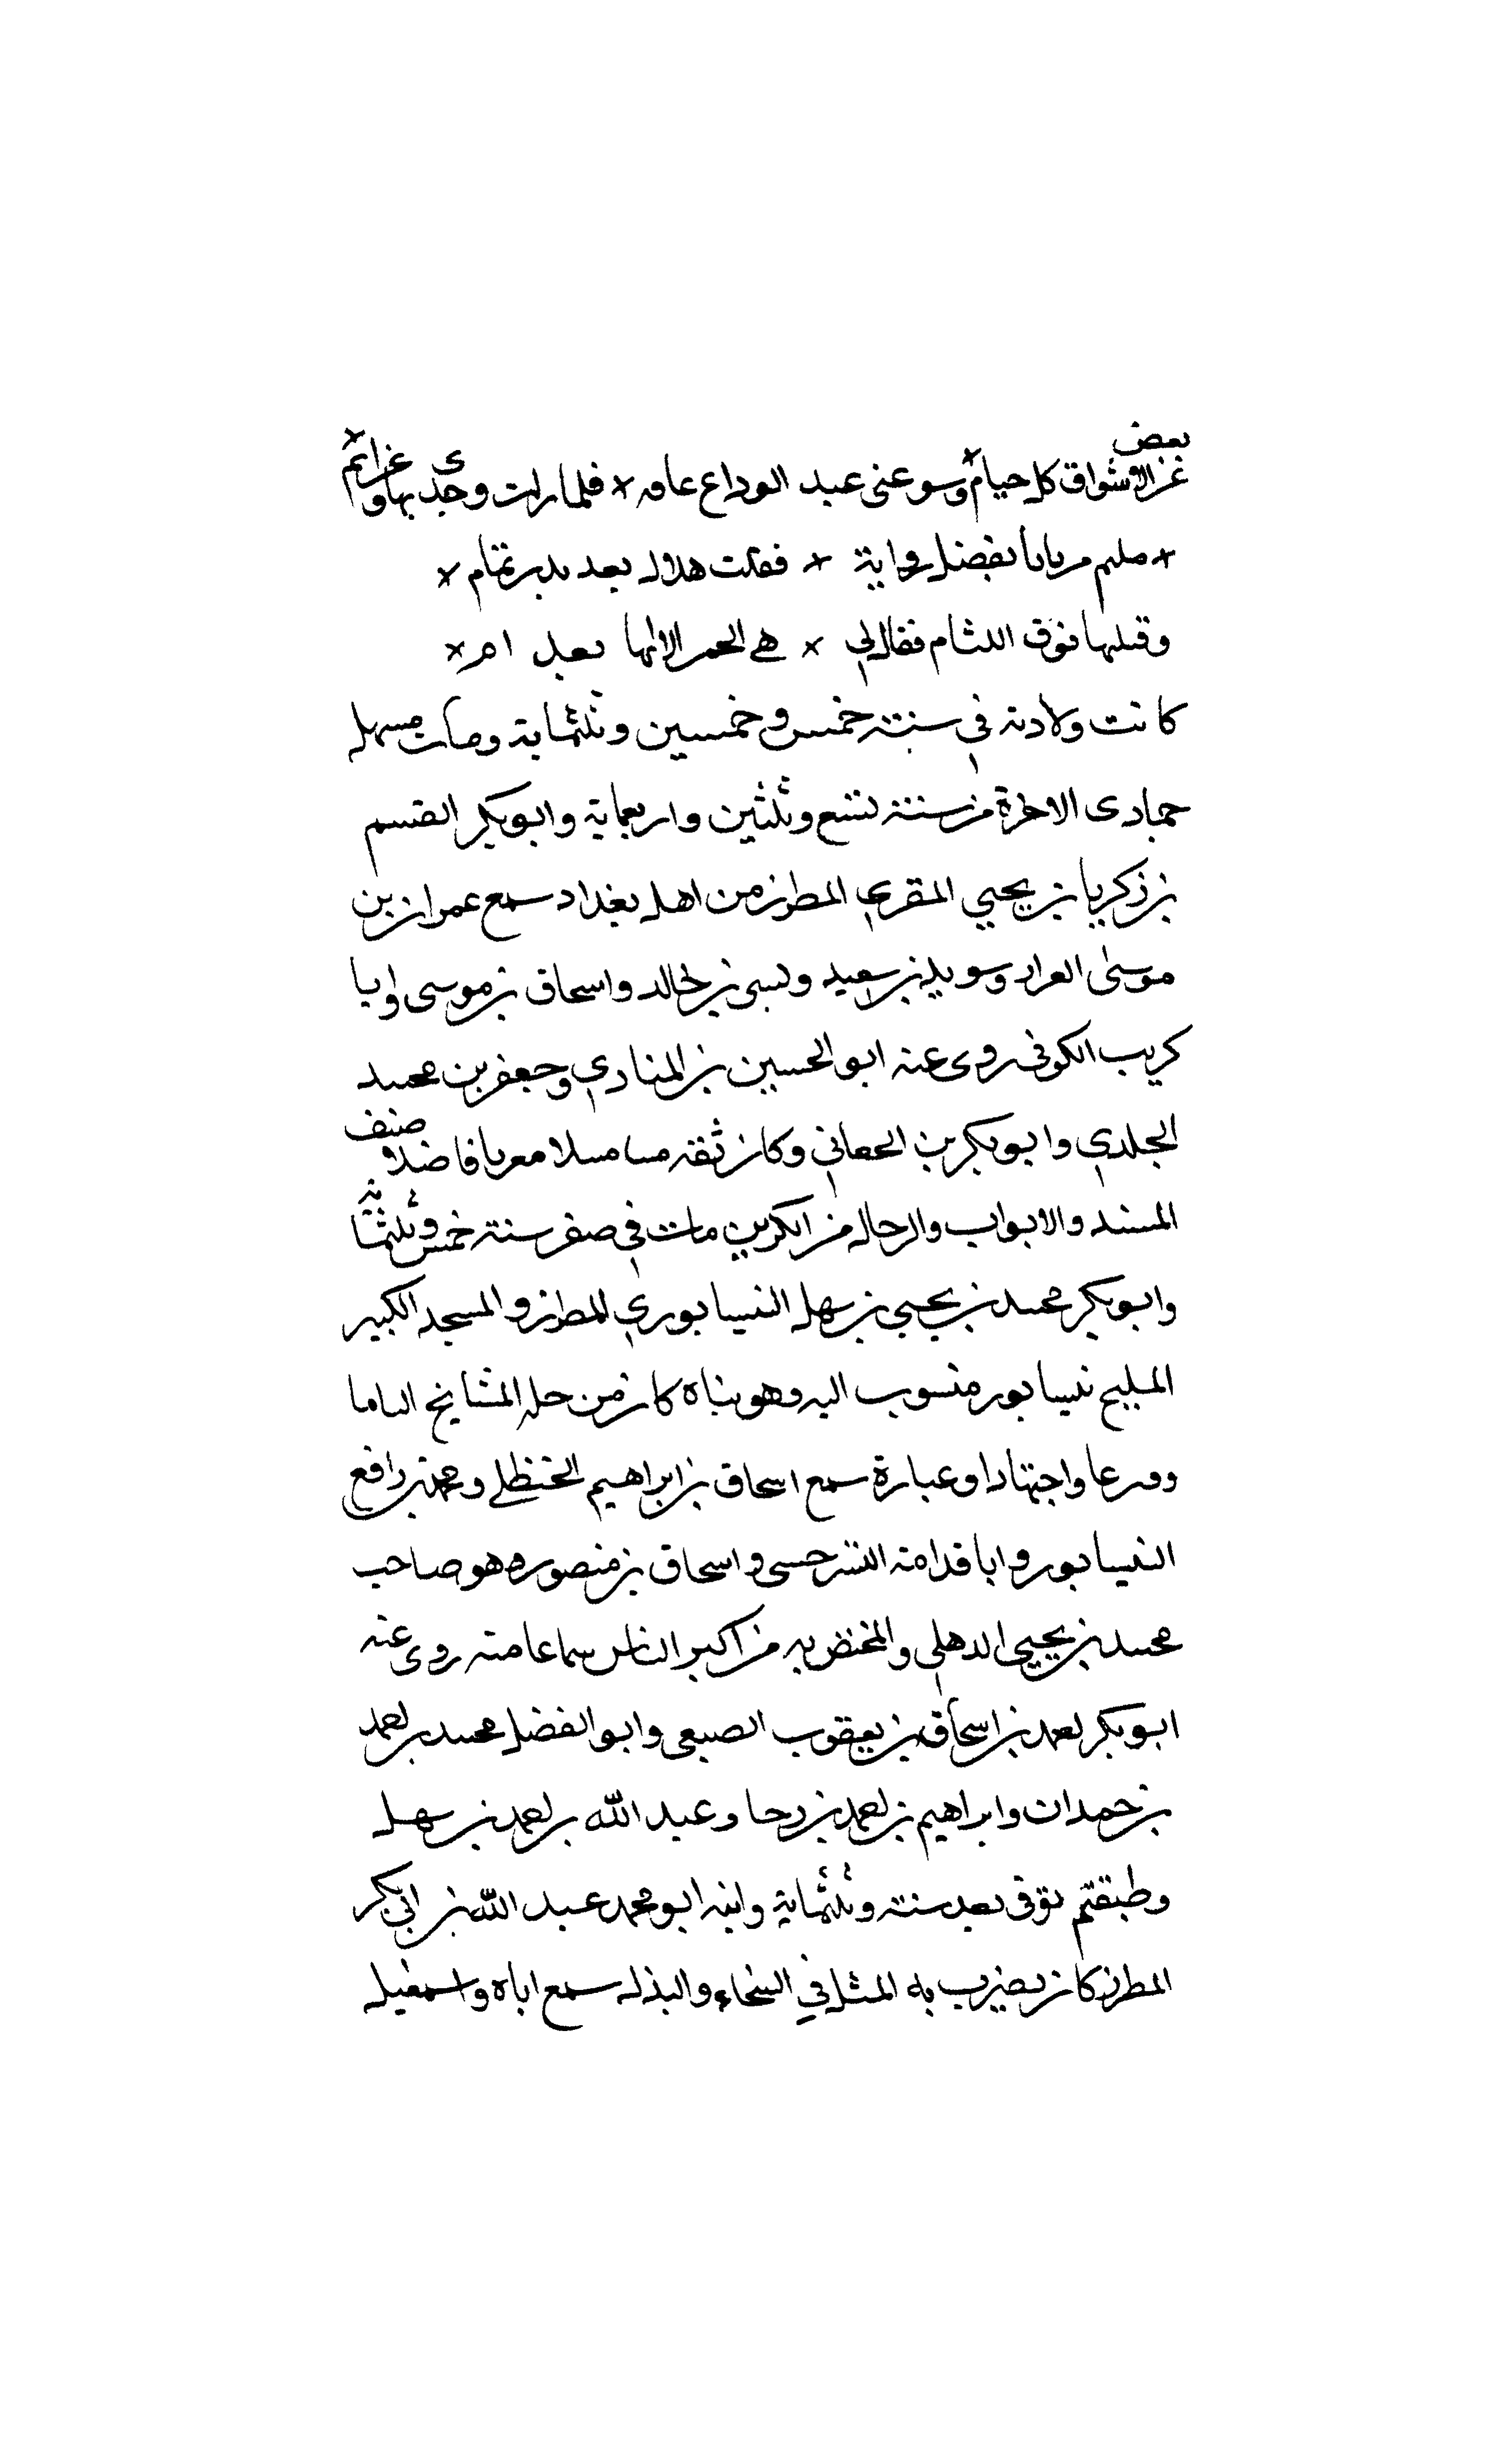 بعض
عن الاشواق كل حيام × وسوعنى عبد الوداع عامه × فلما رات وجدى بها وغرايم ×
× ملىم مربابا بفضل × فقلت هلال بعد بدر تمام ×
وقبلها فوق اللثام فقال لي × هي الخمر الا انها بعد ام ×
كانت ولادته في سنة خمس وخمسين وثلثماية ومات مستهل
جمادى الاخرة من سنة تسع وثلثين واربعماية وابو بكر القسم
بن زكريا بن يحيي المقري المطرز من اهل بغداد سمع عمران بن
موسى القزاز وسويد بن سعيد وبسى بن خالد واسحاق بن موسى وابا
كريب الكوفى روى عنه ابو الحسين بن المنادي وجعفر بن محمد
الجلدي وابو بكر بن الجعاني وكان ثقه مقريا فاضلا صنف
المسند والابواب والرجال من المكثرين مات في صفر سنة خمس وثلثماية
وابو بكر محمد بن يحيى بن سهل النيسابوري المطرز والمسجد الكبير
المليح نيسابور منسوب اليه وهو بناه كان من جلة المشايخ
وورعا واجتهادا وعبارة سمع اسحاق بن ابراهيم الحنظلي ومحمد بن رافع
النيسابور وابا قدامة السرخسى واسحاق بن منصور وهو صاحب
محمد بن يحيى الدهلي والمختص به من اكبر الناس سماعا منه روى عنه
ابو بكر احمد بن اسحاق بن يعقوب الصبعى وابو الفضل محمد بن احمد
بن حمدان وابراهيم بن احمد بن رجا وعبد الله بن احمد بن سهل
وطبقتهم توفى بعد سنة وثلثماية وابنه ابو محمد عبد الله بن ابي بكر
المطرز كان يضرب به المثل في السخاء والبذل سمع اباه واسمعيل